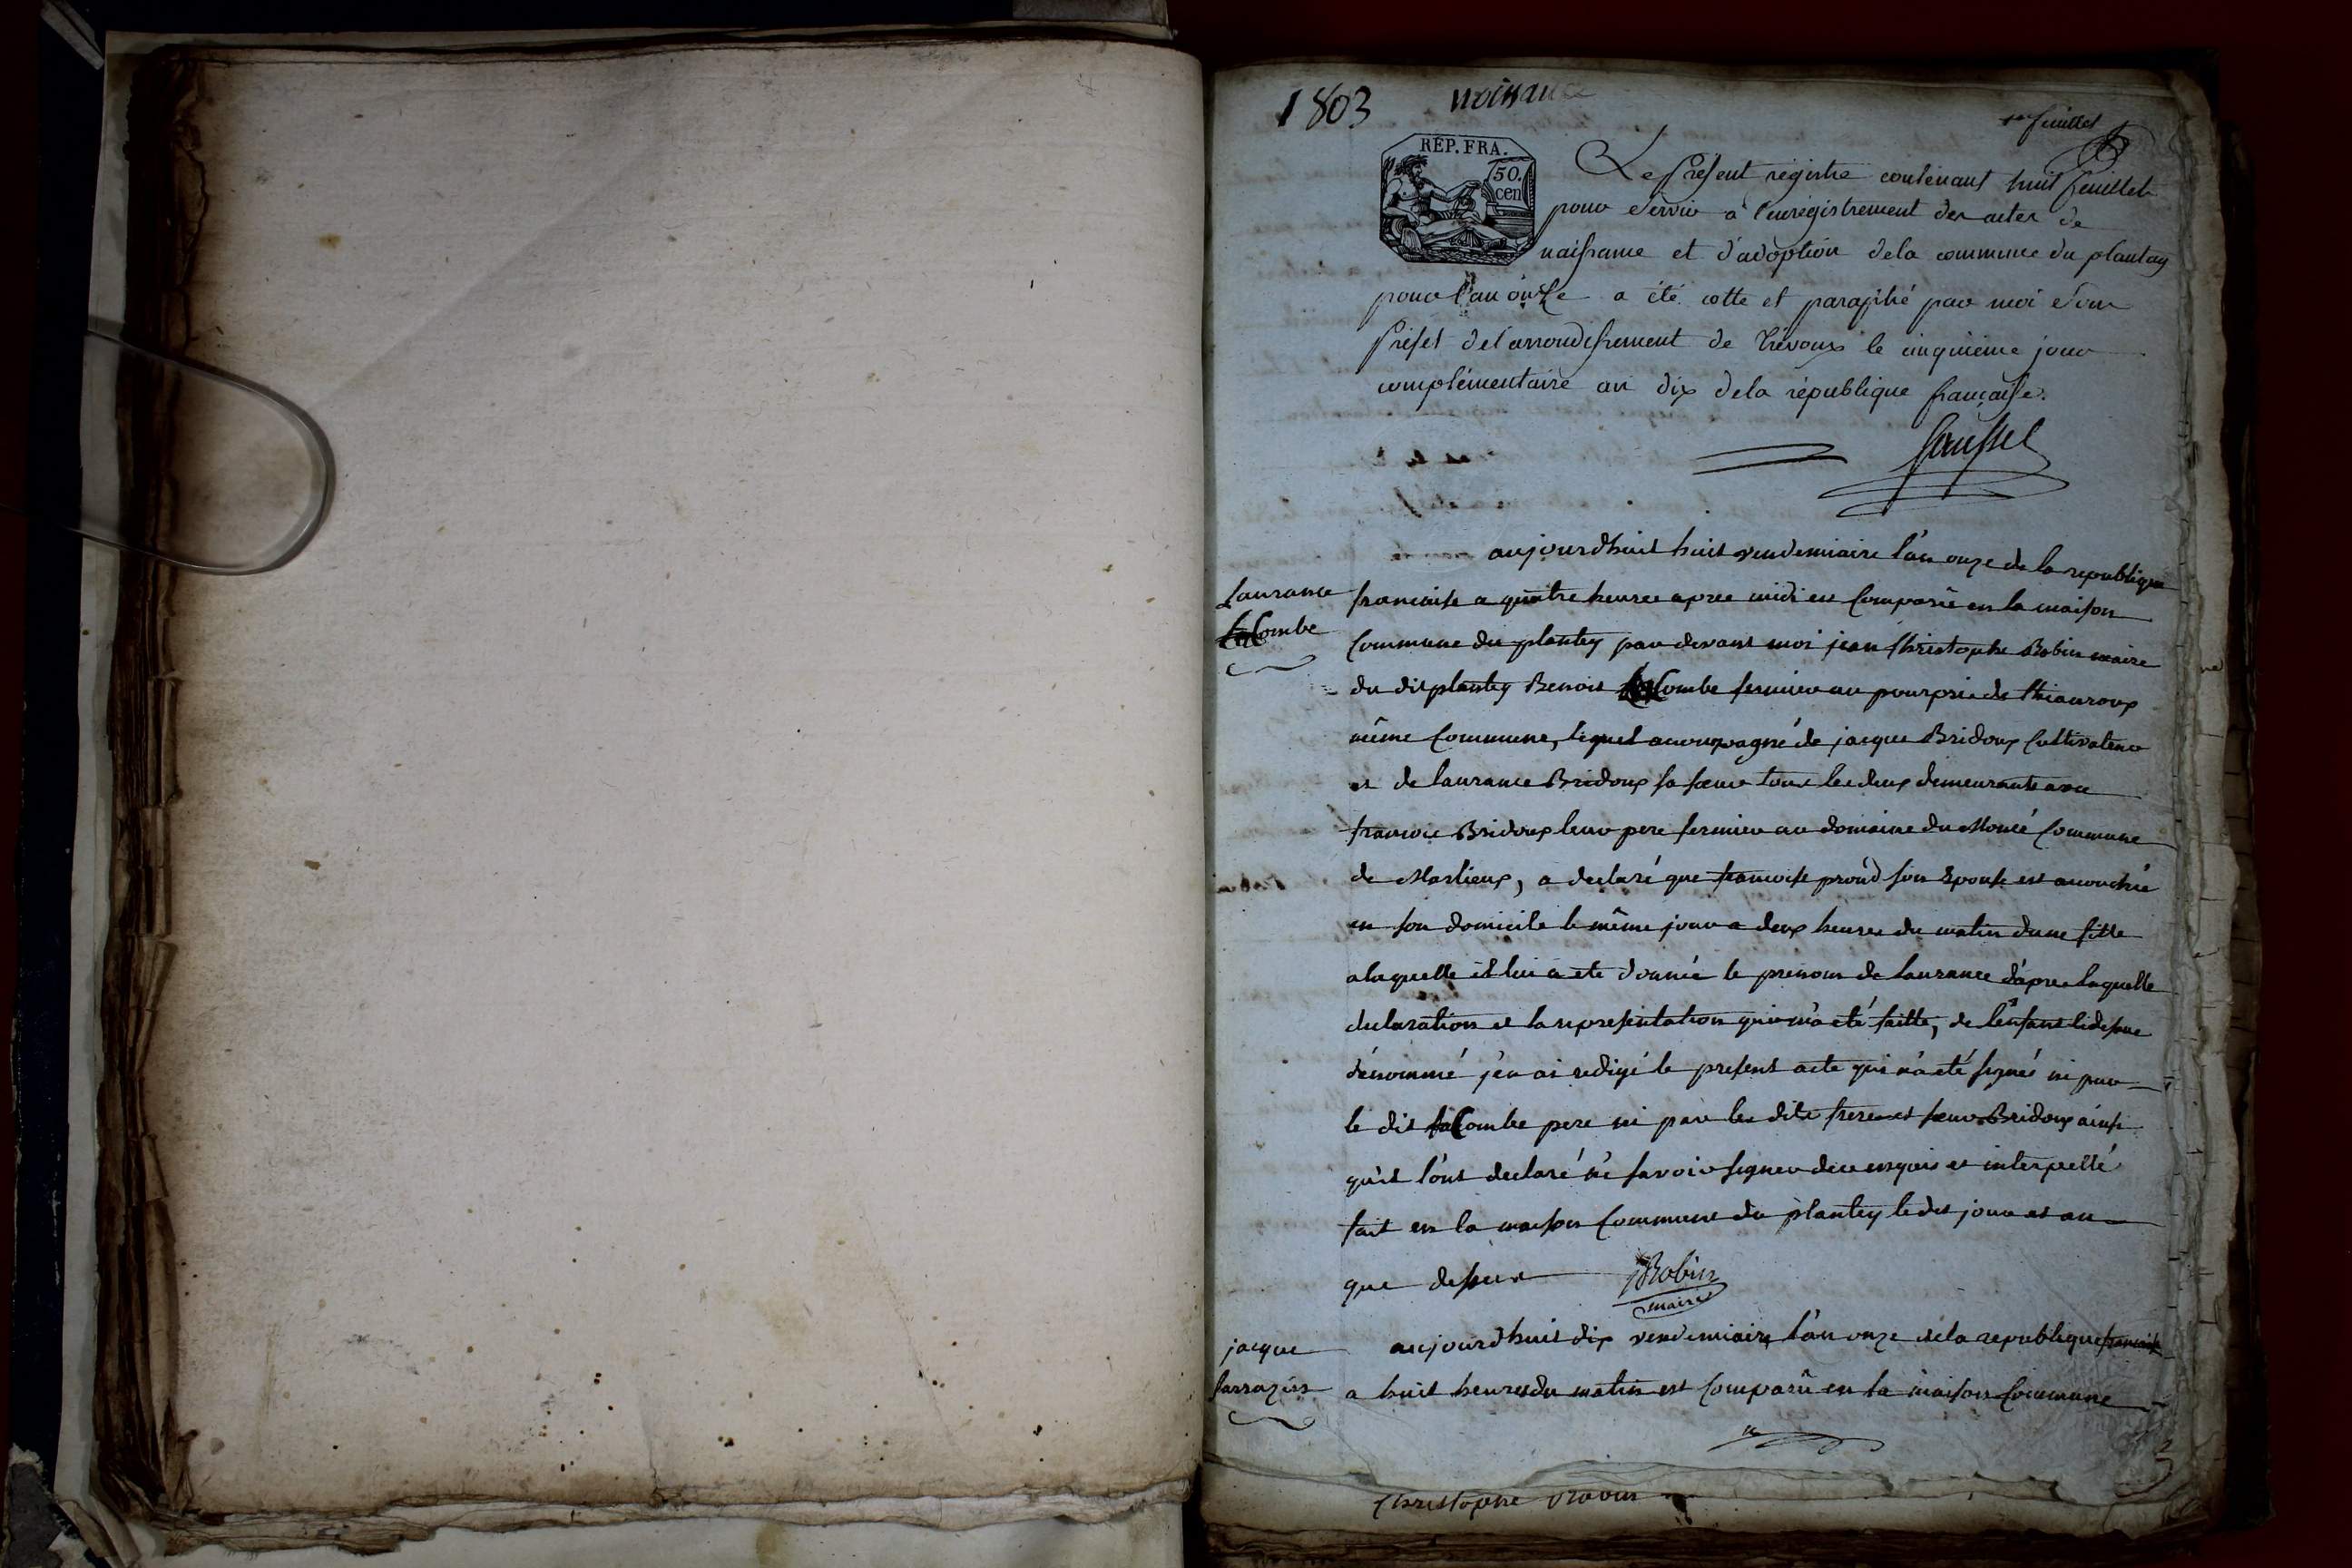 1803 naissance
1er feuillet
RÉP. FRA.
50.
cen
Le présent régistre contenant huit feuillets
pour servir à l'enrégistrement des actes de
naissance et d'adoption de la commune du plantay
pour l'an onze a été cotté et paraphé par moi sous
Préfet de l'arrondissement de Trévoux le cinquième jour
complémentaire an dix de la république française.
aujourdhuit huit vendemiaire l'an onze de la republique
Laurance
francaise a quatre heures apres midi est Comparû en la maison
Combe
Commune du plantey par devant moi jean Christophe Robin maire
du dit plantey Benoit Combe fermier au pourprie de
même Commune, lequel accompagné de jacque Bridoux Cultivateur
et de laurance Bridoux sa sœur tous les deux demeurants avec
francois Bridoux leur pere fermier au domaine du Commune
de Marlieux, a declaré que francoise proud son Epouse est accouchée
en son domicile le même jour a deux heures du matin dune fille
alaquelle il lui a ete donnée le prenom de laurance d'apres laquelle
declaration et la representation qui m'a eté faitte, de l'enfant
dénommé j'en ai redigé le present acte qui n'a eté signé ni par
le dit Combe pere ni par les dits freres et sœur Bridoux ainsi
qu'il l'ont declaré né savoir signer de ce enquis et interpellé
fait en la maison Commune du plantey le dit jour et an
que dessus Robin
maire
jacque
aujourdhuit dix vendemiaire l'an onze de la republique francaise
Sarrazin
a huit heures du matin est Comparû en la maison Commune
Christophe Robin